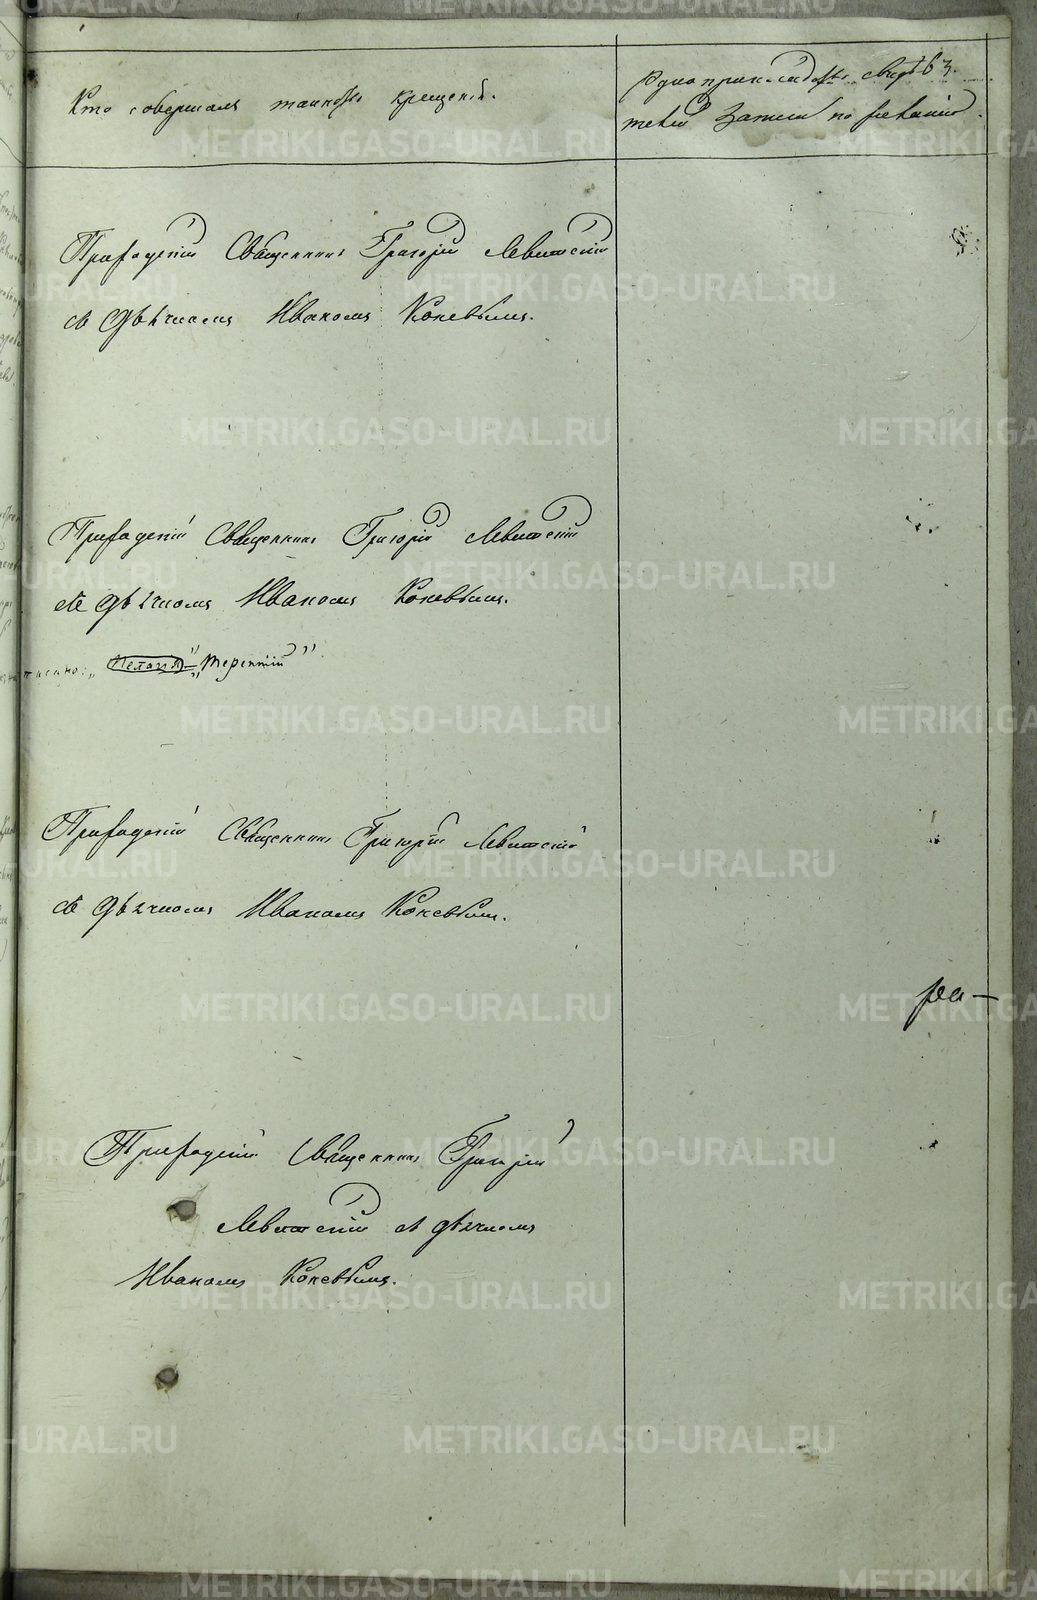 Кто совершалъ таинство крещенія.
Рукоприкладство свидѣ
телей записи по желанію.
Приходскій Священникъ Григорій Левитскій
съ дьячкомъ Иваномъ Коневымъ.
Приходскій Священникъ Григорій Левитскій
съ дьячкомъ Иваномъ Коневымъ.
„Терентій”
Приходскій Священникъ Григорій Левитскій
съ дьячкомъ Иваномъ Коневымъ.
Приходскій Священникъ Григорій
Левитскій съ дьячкомъ
Иваномъ Коневымъ.
METRIKI.GASO-URAL.RU